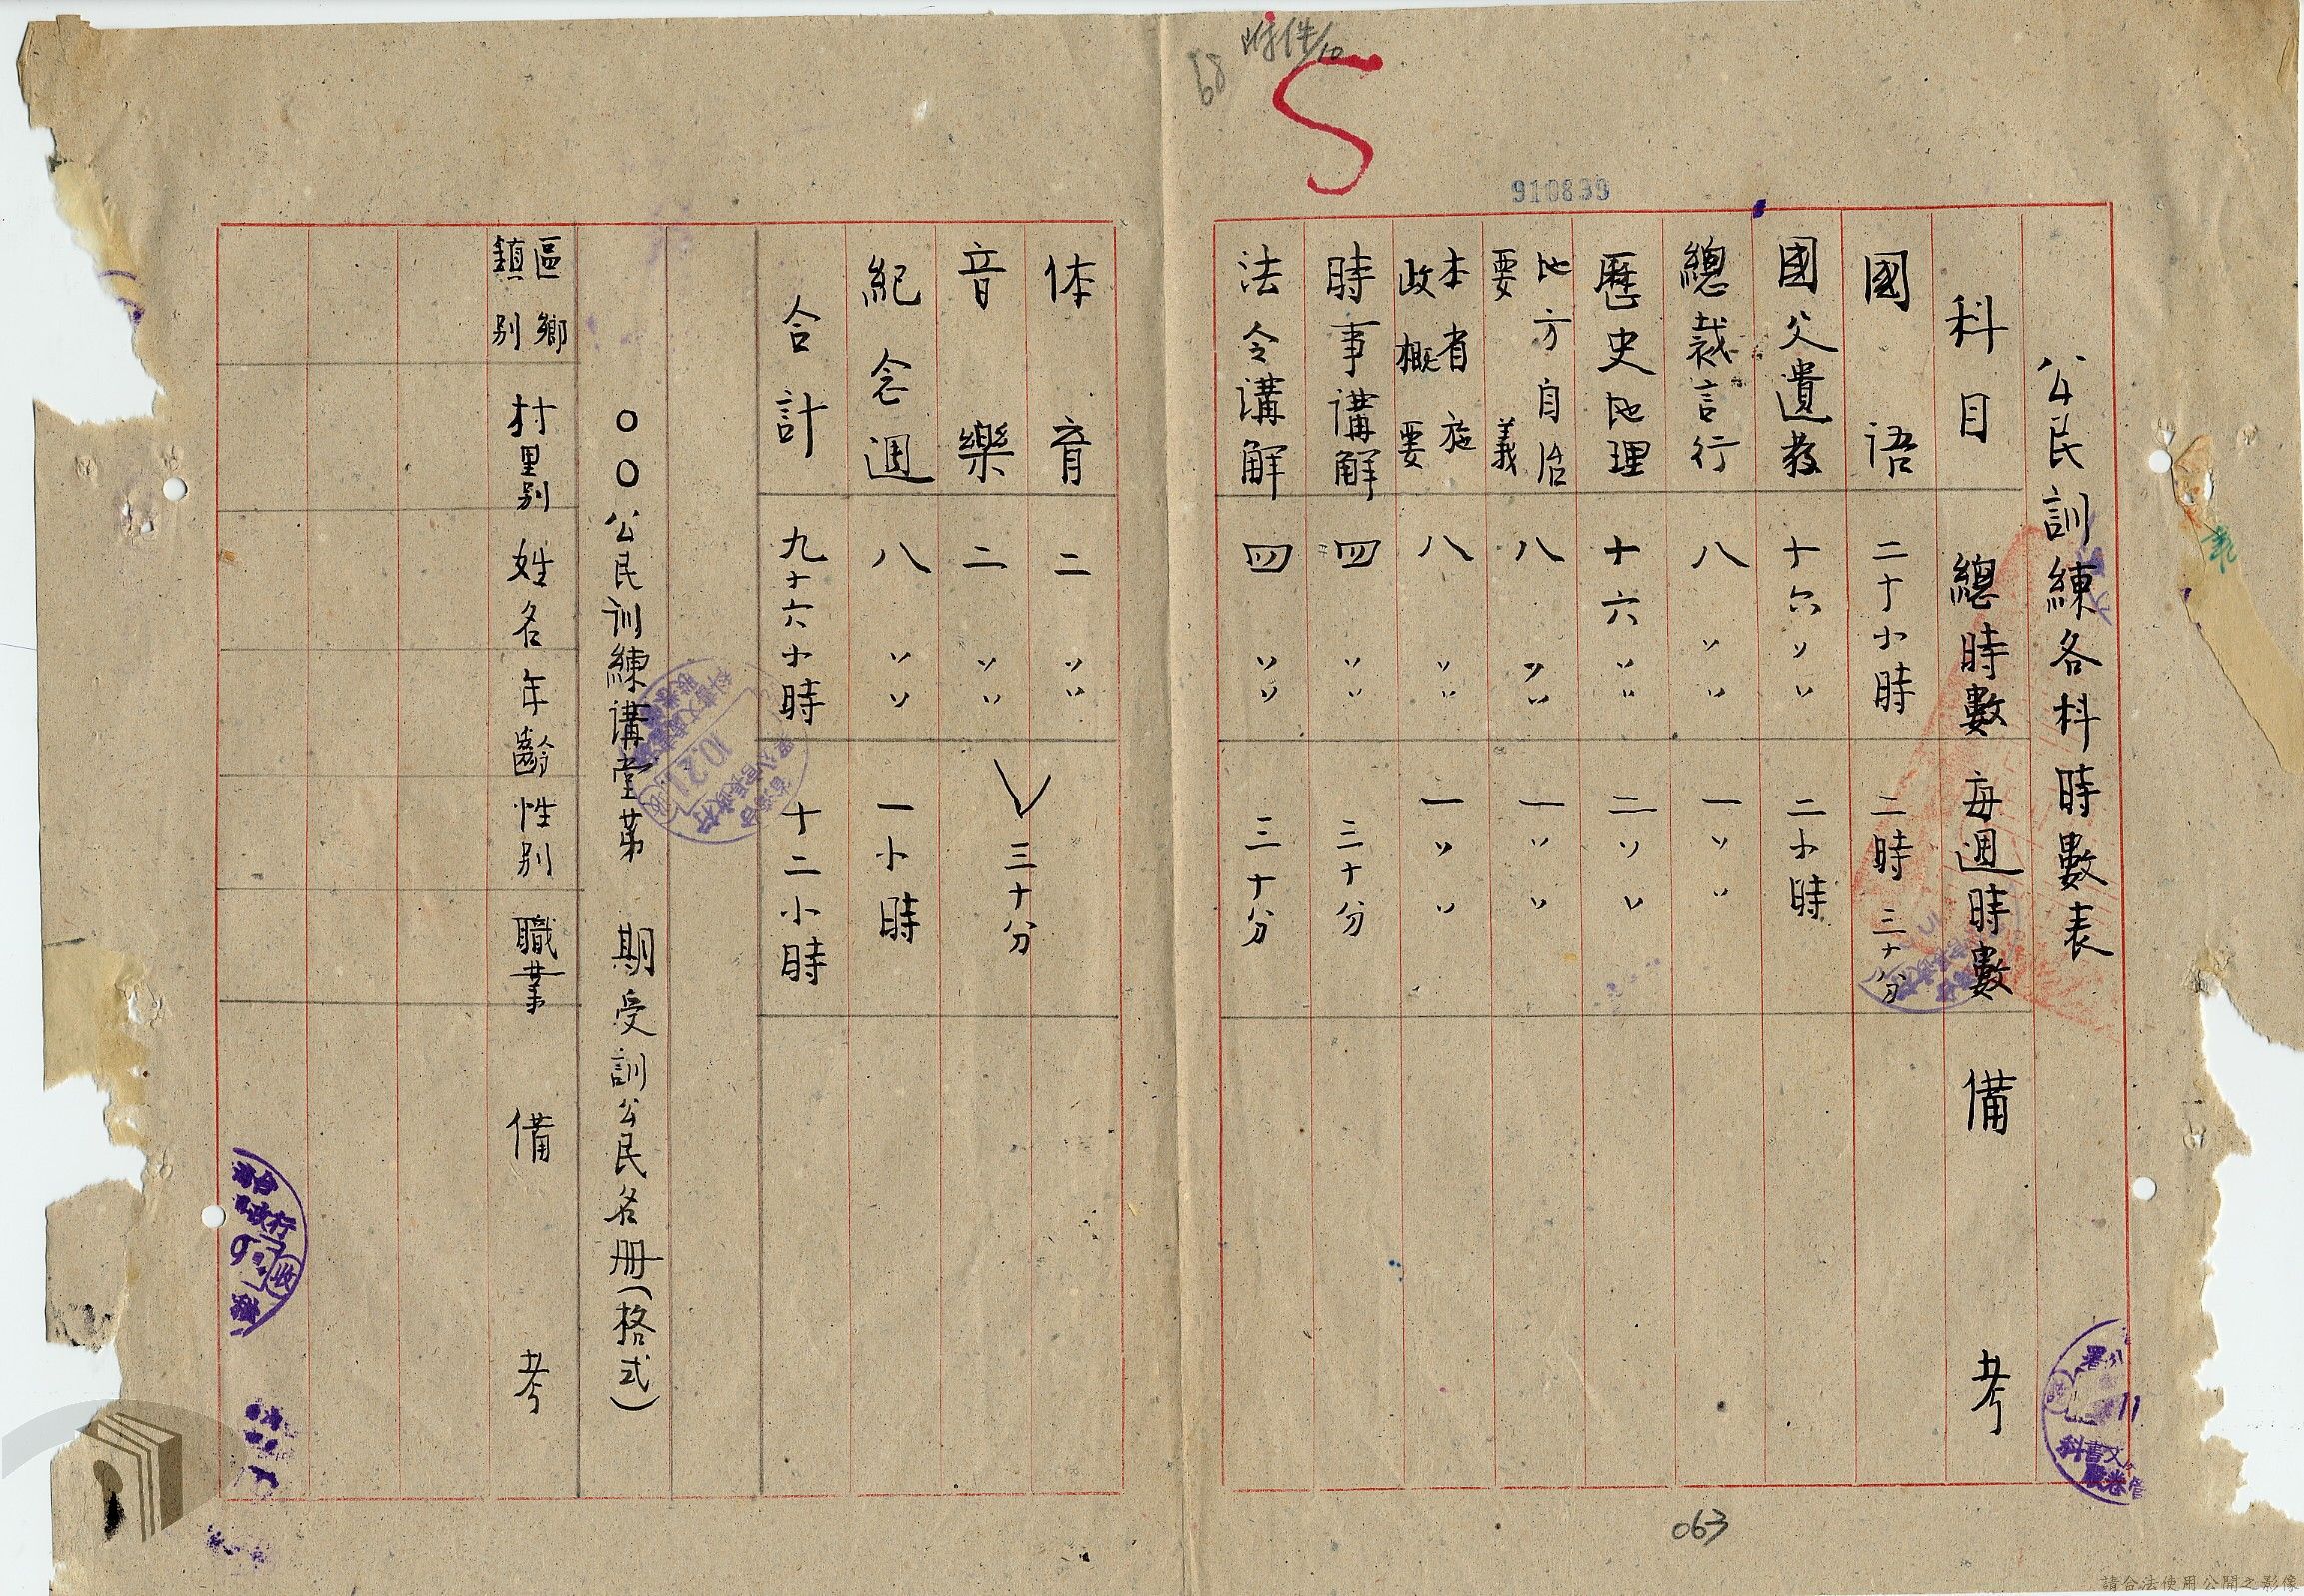 附件/10
68
5
910839
公民訓練各科時數表
科目 總時數 每週時數 備考
國語 二十小時 二時三十分
國父遺教 十六〃〃 二小時
總裁言行 八〃〃 一〃〃
歷史地理 十六〃〃 二〃〃
地方自治要義 八〃〃 一〃〃
本省施政概要 八〃〃 一〃〃
時事講解 四〃〃 三十分
法令講解 四〃〃 三十分
体育 二〃〃
音樂 二〃〃 三十分
紀念週 八〃〃 一小時
合計 九十六小時 十二小時
〇〇公民训練講堂第 期受訓公民名册(格式)
區鄉鎮别 村里别 姓名 年齡 性别 職業 備考
063
請合法使用公開之影像